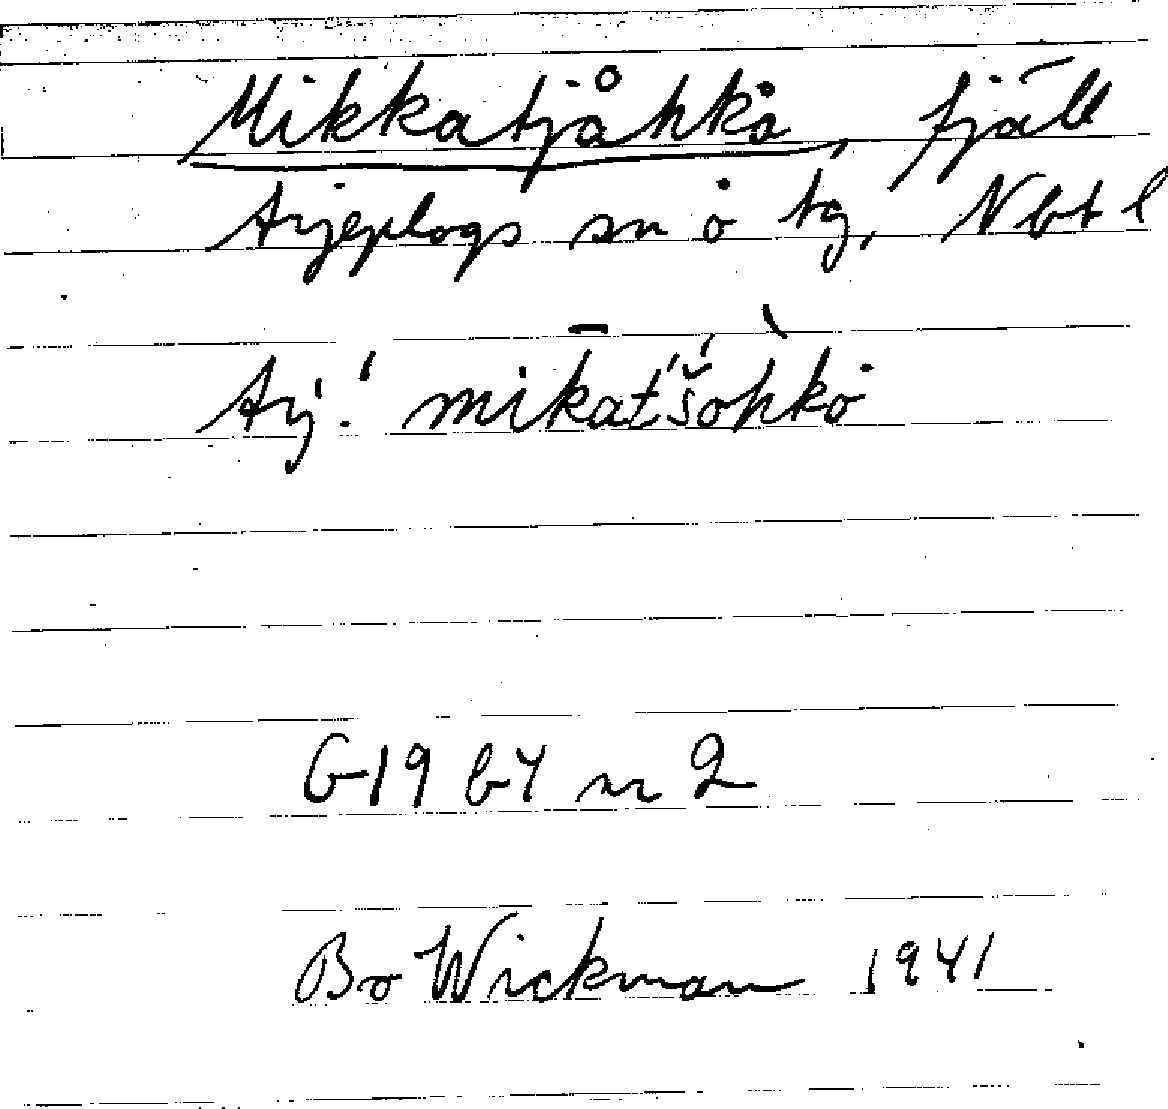 Mikkatjåhkå, fjäll
Arjeplogs sn o tg, Nbt l
Arj.' mīkat́'š́òhkȯ
G19 b4 nr 2
Bo Wickman 1941